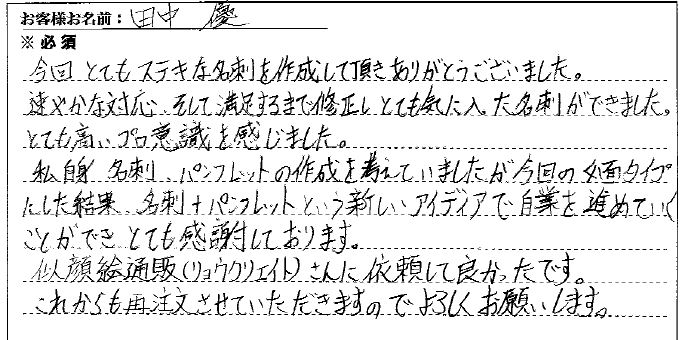 お客様お名前：田中 優
※必須
今回 とてもステキな名刺を作成して頂きありがとうございました。
速やかな対応、そして満足するまで修正し とても気に入った名刺ができました。
とても高いプロ意識を感じました。
私自身 名刺、パンフレットの作成を考えていましたが今回の 面タイプ
にした結果、名刺+パンフレットという新しいアイディアで自業を進めていく
ことができ とても感謝しております。
似顔絵通販(リョウクリエイト)さんに依頼して良かったです。
これからも再注文させていただきますのでよろしくお願いします。